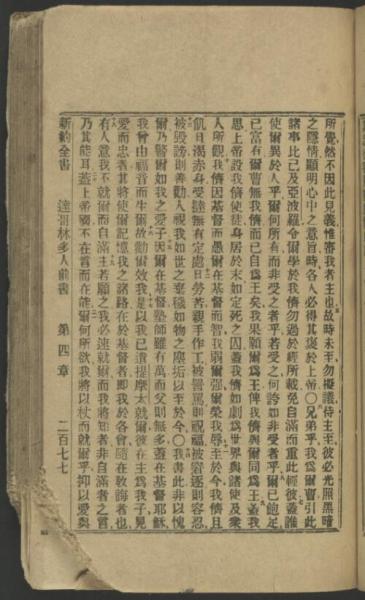 所覺然不因此見義惟審我者主也故時未至勿擬議待主至彼必光照黑暗
之隱情顯明心中之意旨時各人必得其褒於上帝〇兄弟乎我爲爾曹引此
諸事比己及亞波羅令爾學於我儕勿過於經所載免自滿而重此輕彼蓋誰
使爾異於人乎爾何所有而非受之者乎若受之何誇如非受者乎爾已飽足
已富有爾曹無我儕而已自爲王矣我果願爾爲王俾我儕與爾同爲王蓋我
思上帝設我儕使徒身居於末如定死之囚蓋我儕如劇爲世界與諸使及衆
人所觀我儕因基督而愚爾在基督而智我弱爾强爾榮我辱至於今我儕且
飢且渴赤身受撻無有定處日勞苦親手作工被詈罵則祝福被窘逐則容忍
被毀謗則善勸人視我如世之棄穢如物之塵垢以至於今〇我書此非以愧
爾乃警爾如我之愛子因爾在基督塾師雖有萬而父則無多蓋在基督耶穌
我曾由福音而生爾故勸爾效我是以我已遣提摩太就爾彼在主爲我子見
愛而忠者其將使爾記憶我之諸路在於基督者即我於各會隨在教誨者也
有人意我不就爾而自滿主若願之我必速就爾而我將知者非自滿者之言
乃其能耳蓋上帝國不在言而在能爾何所欲我將以杖而就爾乎抑以愛與
新約全書 達哥林多人前書 第四章 二百七七